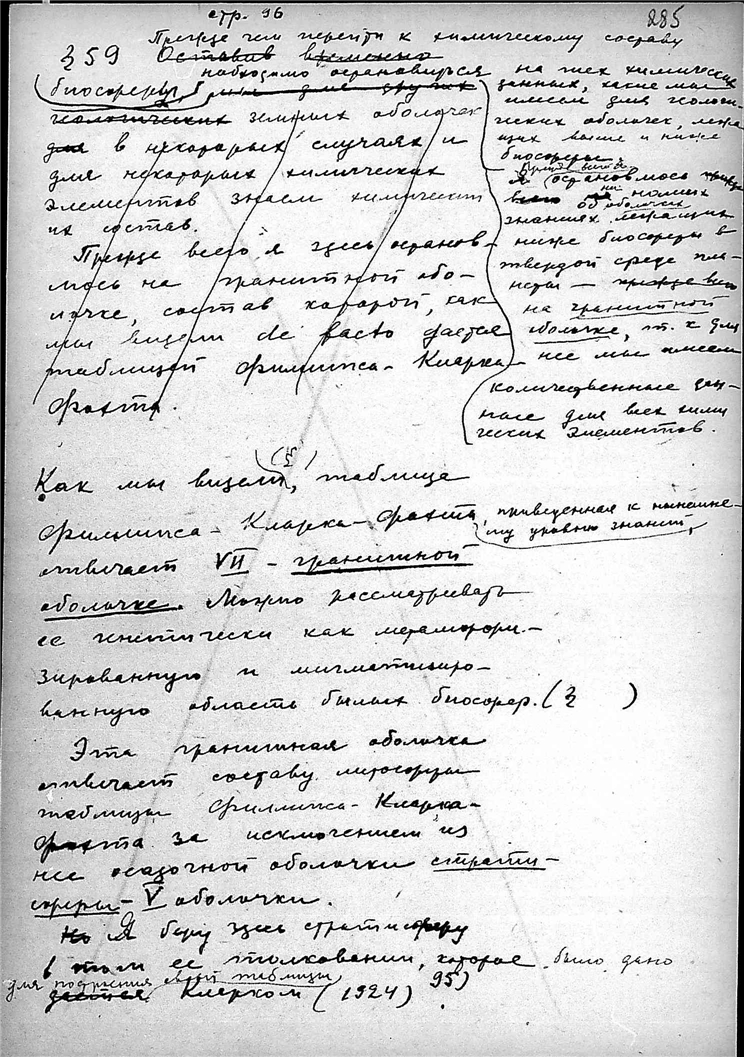 стр. 96
285
Прежде чем перейти к химическому составу
§ 59 Оставив временно
необходимо остановиться
биосферы,
геологических земных оболочек
для в некоторых случаях и
для некоторых химических
элементов знаем химический
их состав.
Прежде всего я здесь останов-
люсь на гранитной обо-
лочке, состав которой, как
мы видели de facto дается
таблицей Филиппса-Кларка-
Фохта.
на тех химических
данных, какие мы
имеем для геологи-
ческих оболочек, лежа-
щих выше и ниже
биосферы
Прежде всего
я остановлюсь
на наших
об оболочках
знаниях лежащих
ниже биосферы в
твердой среде пла-
неты — прежде всего
на гранитной
оболочке, т. к для
нее мы имеем
количественные дан-
ные для всех хими
ческих элементов.
(§ )
Как мы видели, таблица
Филиппса-Кларка-Фохта, приведенная к нынешне-
му уровню знаний,
отвечает VII - гранитной
оболочке. Можно рассматривать
ее генетически как метаморфи-
зированную и мигматизиро-
ванную область былых биосфер. (§ )
Эта гранитная оболочка
отвечает составу литосферы
таблицы Филлипса-Кларка-
Фохта за исключением из
нее осадочной оболочки страти-
сферы - V оболочки.
Но Я беру здесь стратисферу
в том ее толковании, которое было дано
для построения своей таблицы
дается Кларком (1924) 95)